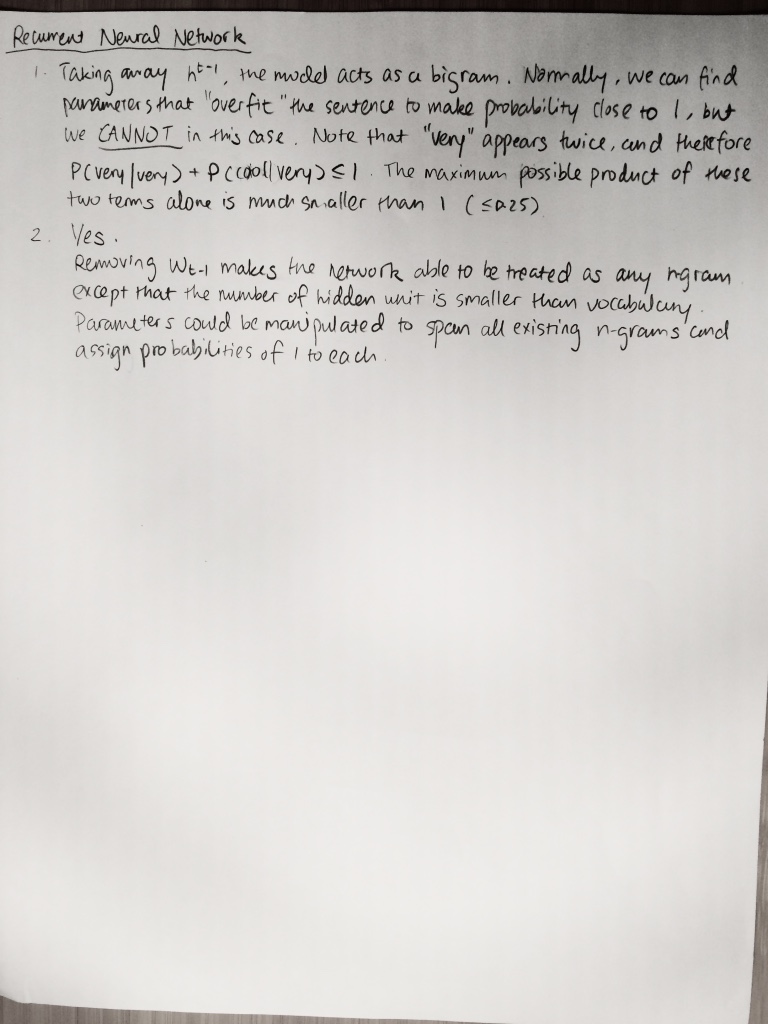 Recurrent Neural Network
1. Taking away h^t-1, the model acts as a bigram. Normally, we can find
parameters that "overfit" the sentence to make probability close to 1, but
we CANNOT in this case. Note that "very" appears twice, and therefore
P(very|very) + P(cool|very) ≤ 1. The maximum possible product of these
two terms alone is much smaller than 1 (≤0.25)
2. Yes.
Removing Wt-1 makes the network able to be treated as any ngram
except that the number of hidden unit is smaller than vocabulary.
Parameters could be manipulated to span all existing n-grams and
assign probabilities of 1 to each.